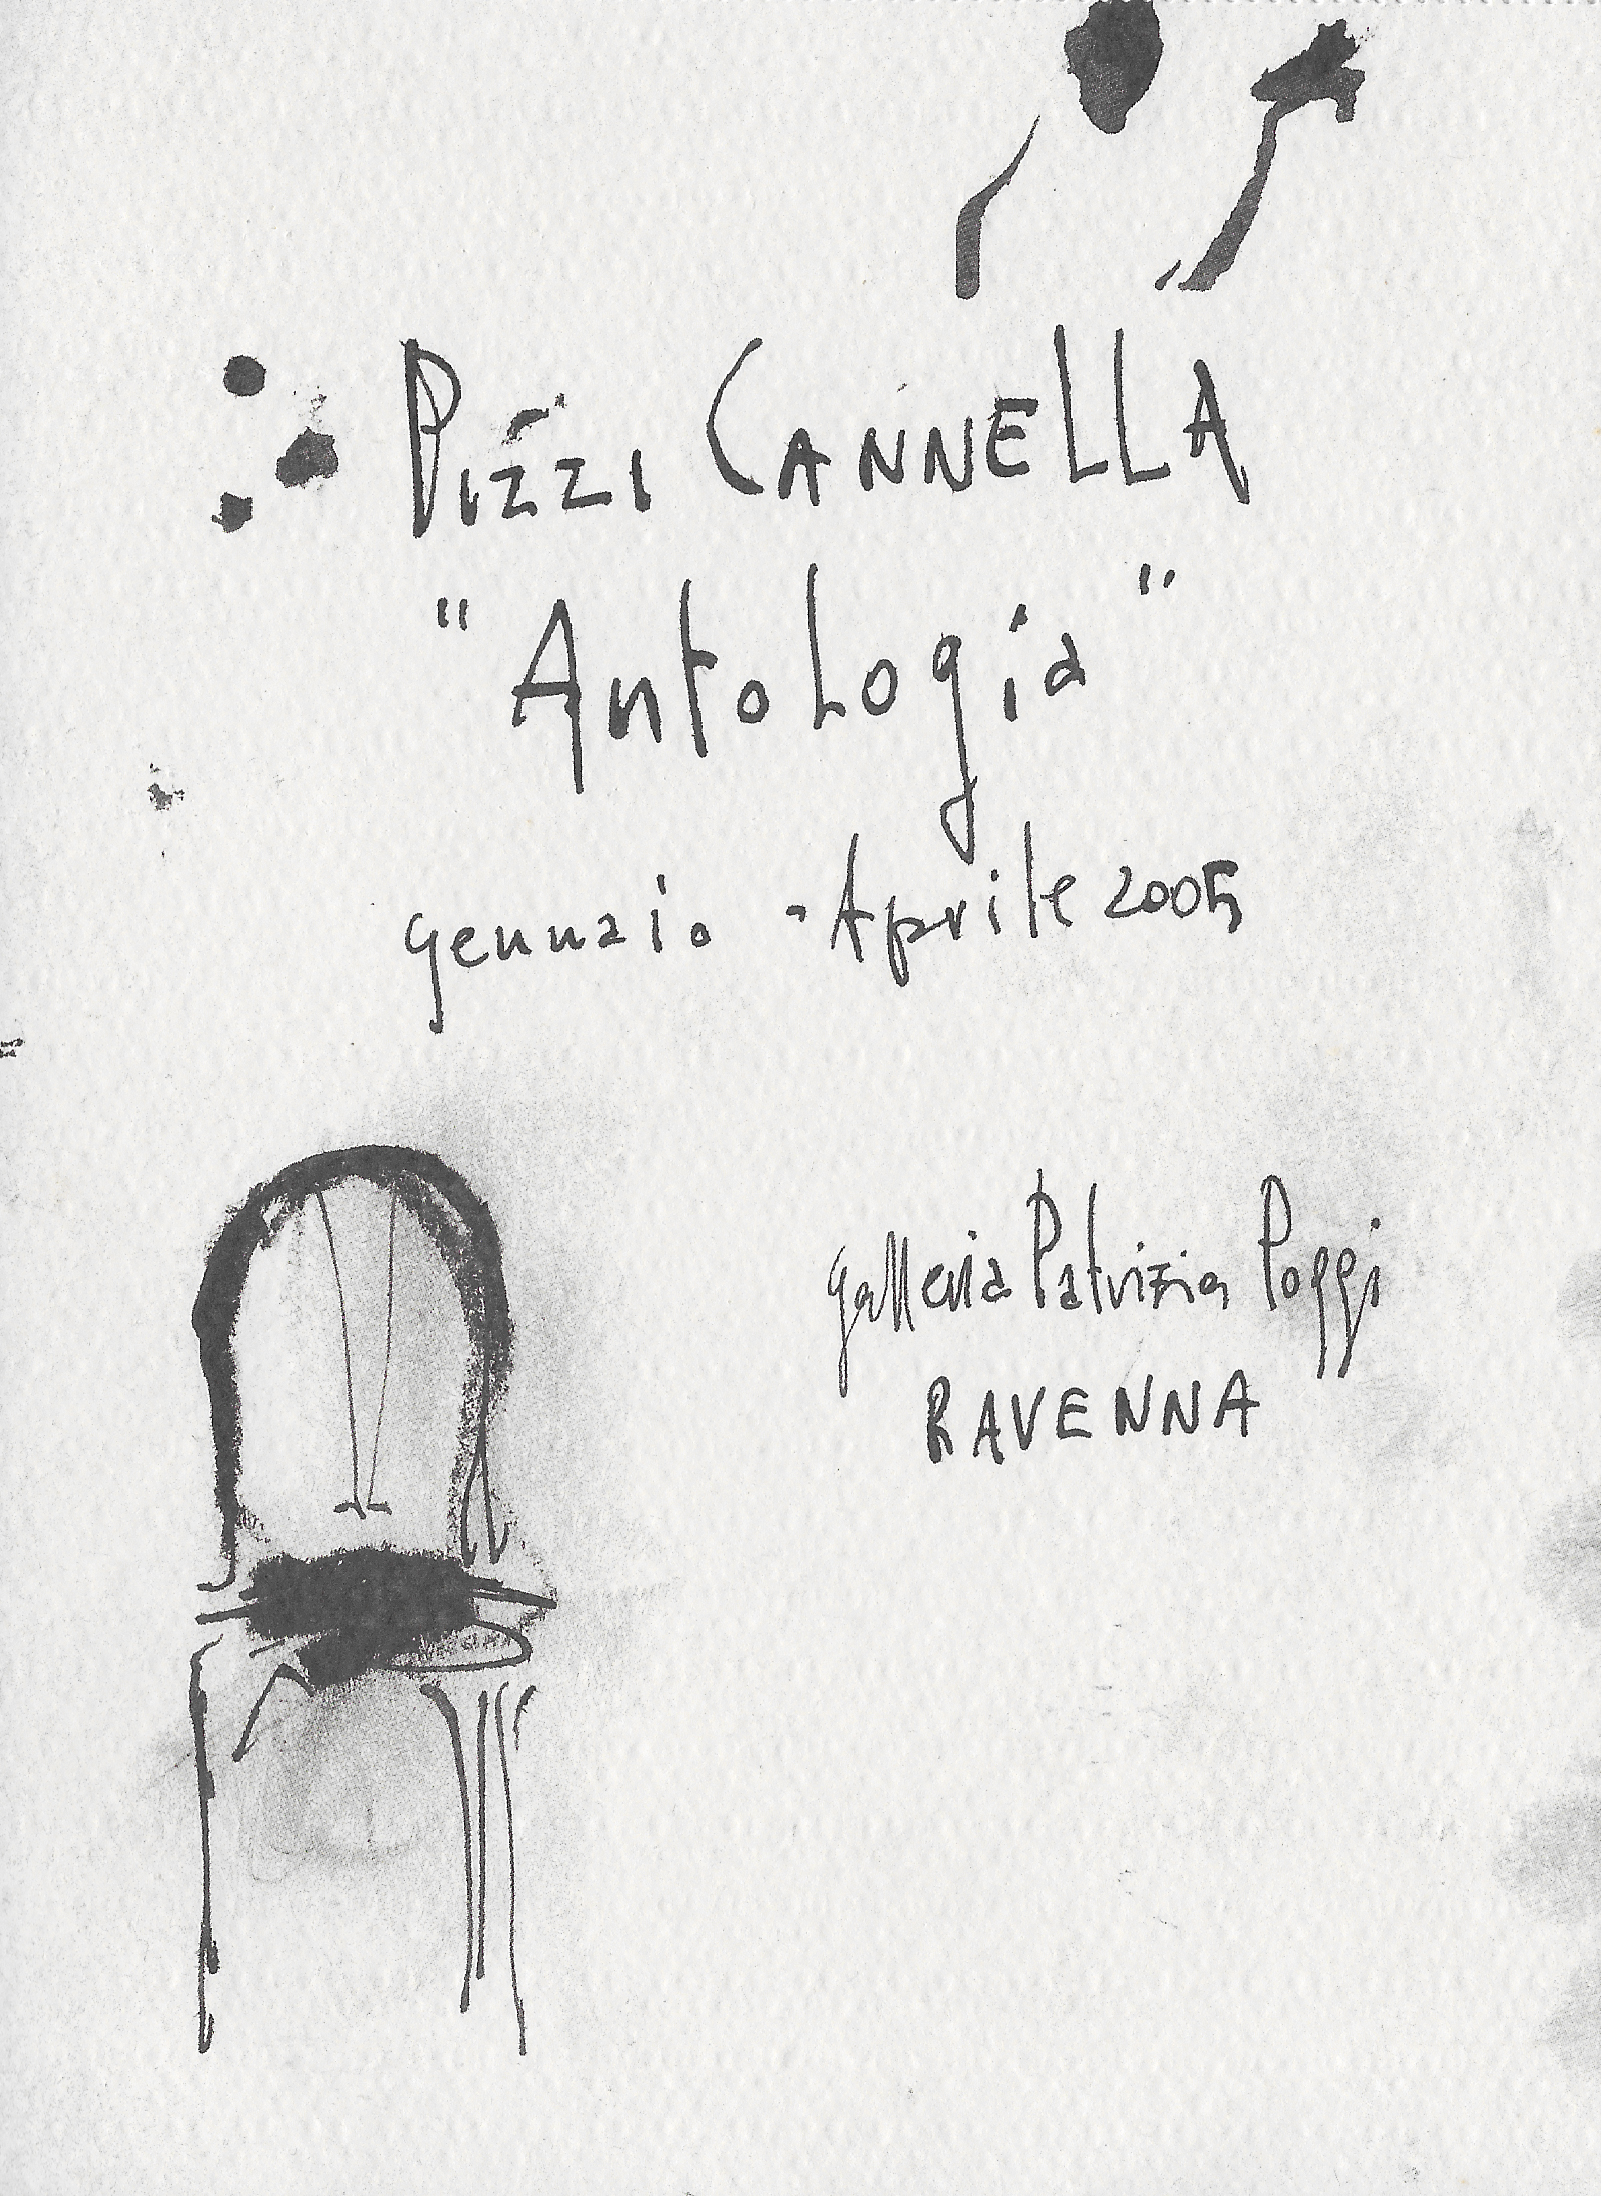 PIZZI CANNELLA
"Antologia"
gennaio - Aprile 2005
galleria Patrizia Poggi
RAVENNA